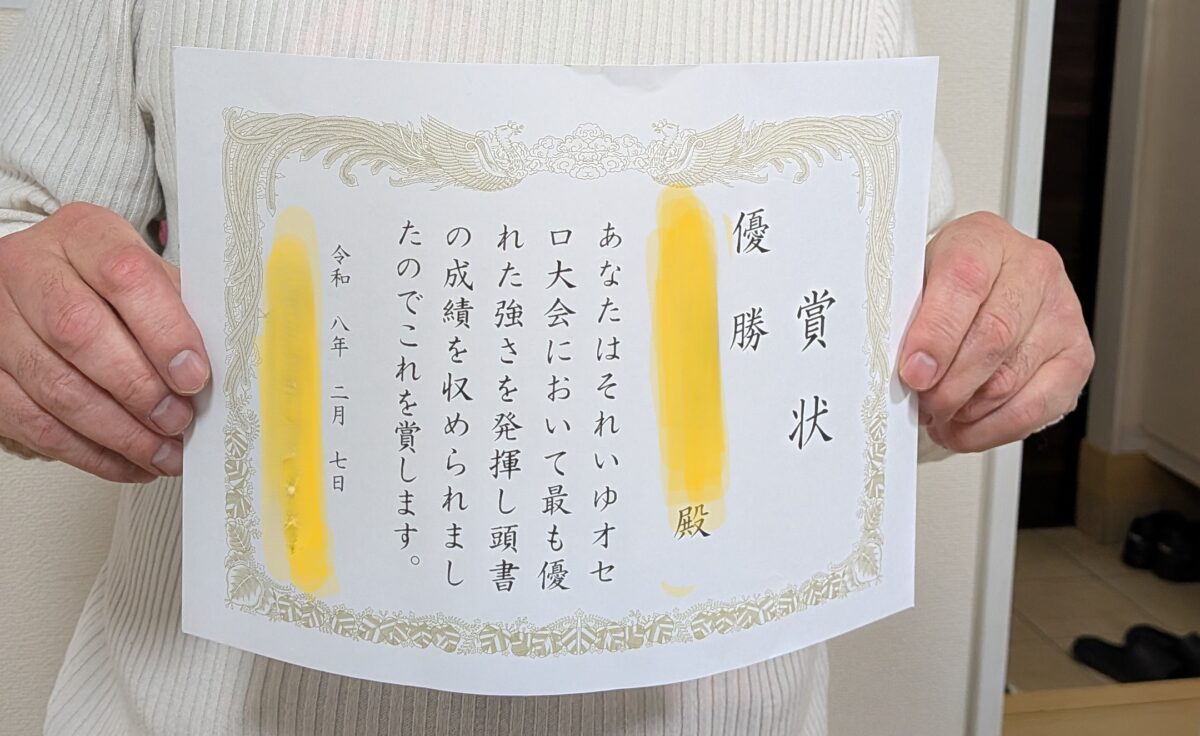 賞状
優勝
殿
あなたはそれいゆオセ
ロ大会において最も優
れた強さを発揮し頭書
の成績を収められまし
たのでこれを賞します。
令和 八年 二月 七日